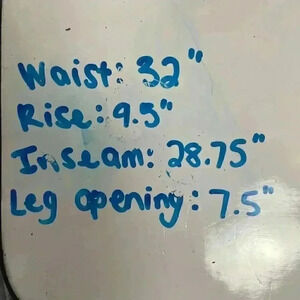 Waist: 32"
Rise: 9.5"
Inseam: 28.75"
Leg opening: 7.5"